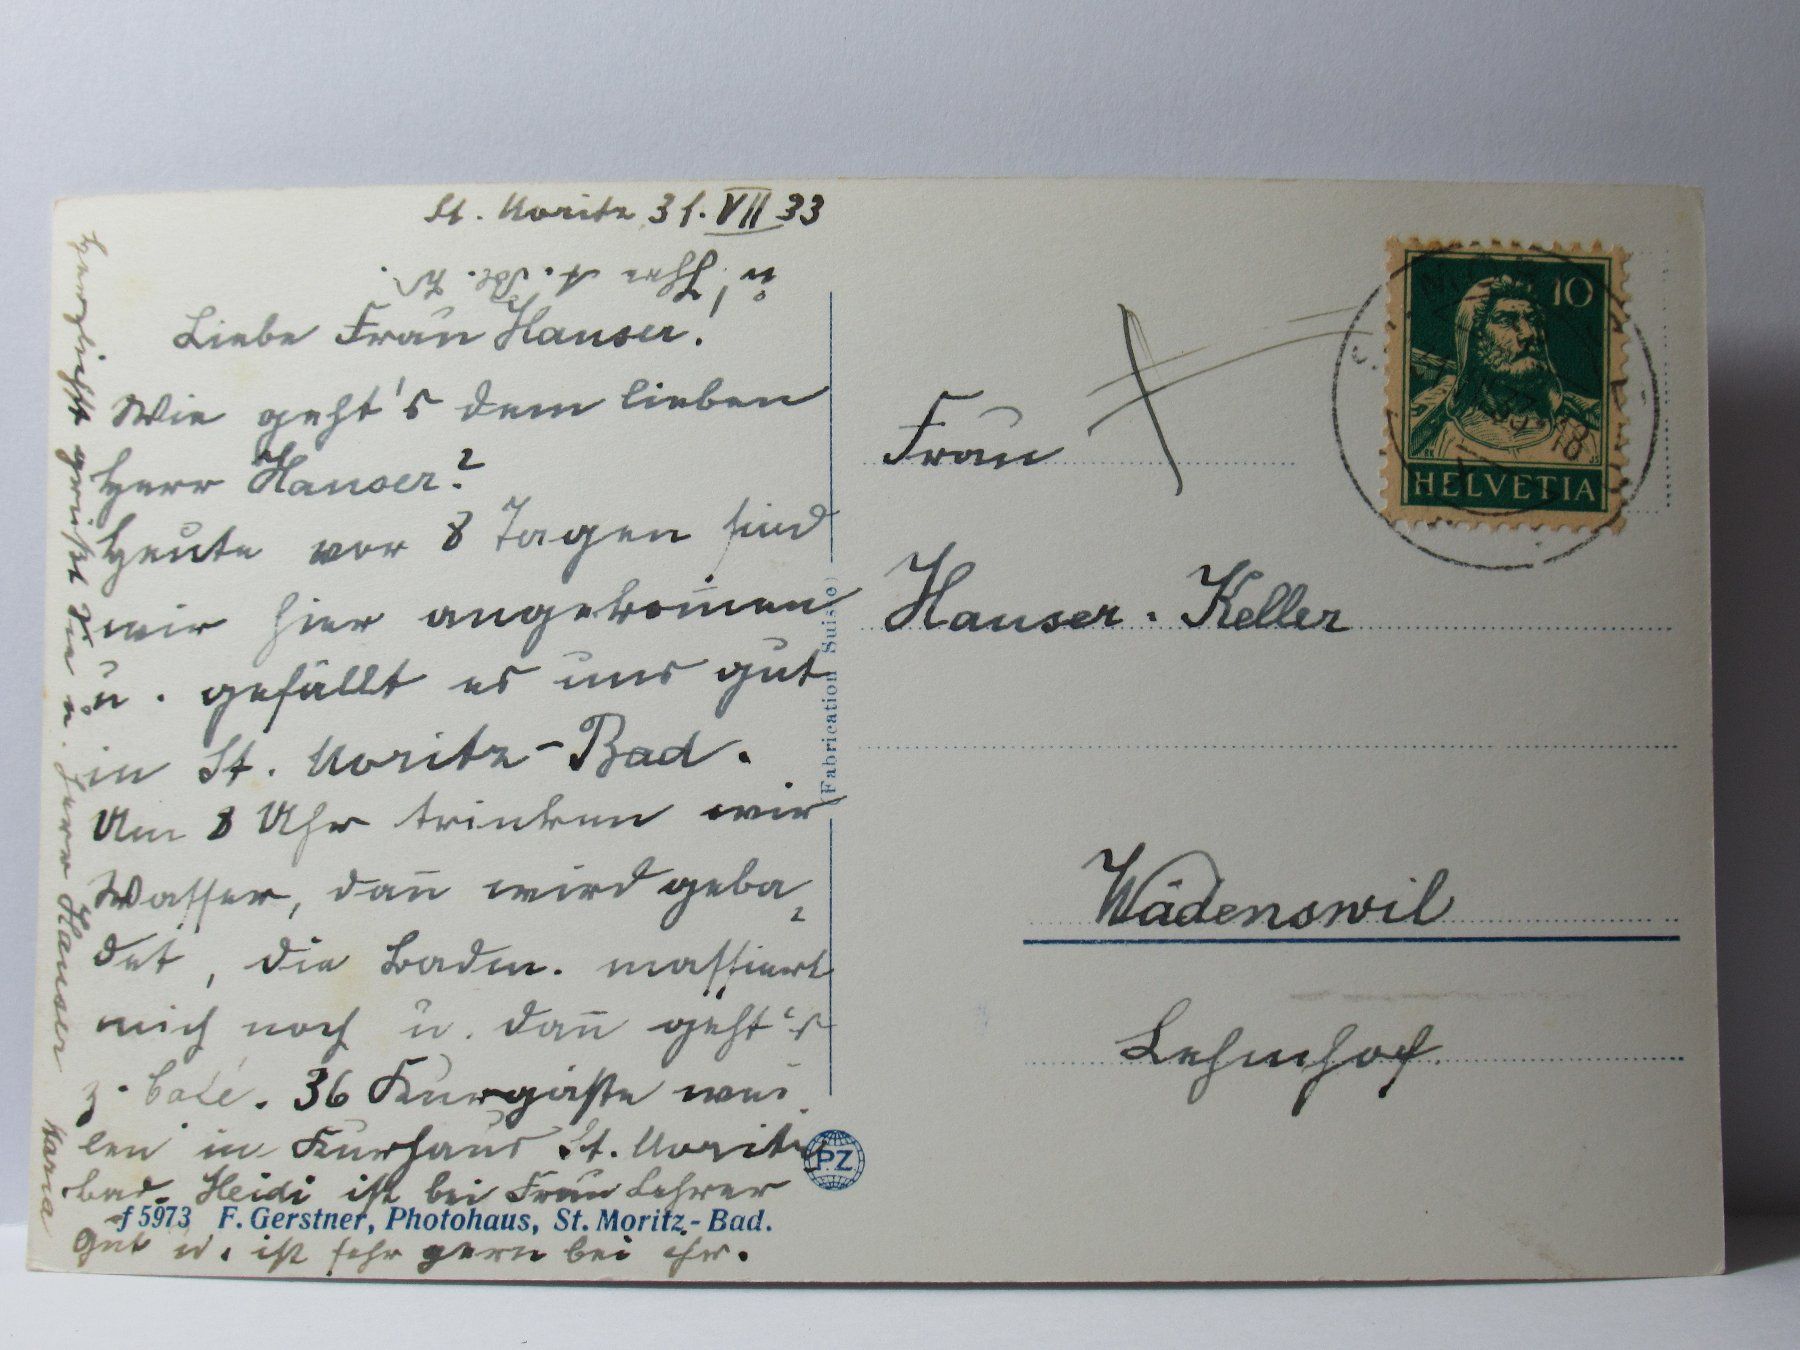 St. Moritz 31. VII 33
Liebe Frau Hauser!
Wie geht's dem lieben
Herr Hauser?
Heute vor 8 Tagen sind
wir hier angekom̅en
u. gefällt es uns gut
in St. Moritz-Bad.
Um 8 Uhr trinken wir
Wasser, dan̅ wird geba-
det, die Badm. massiert
mich noch u. dan̅ geht's
z. Café. 36 Kurgäste wei-
len in Kurhaus St. Moritz
bad. Heidi ist bei Frau Lehrer
Gut u. ist sehr gern bei ihr.
Herzlichst grüsst Sie u. Herr Hauser
u. Ihre
Frau
Hauser-Keller
Wädenswil
Lehmhof
10
HELVETIA
(Fabrication Suisse)
PZ
f 5973 F. Gerstner, Photohaus, St. Moritz-Bad.